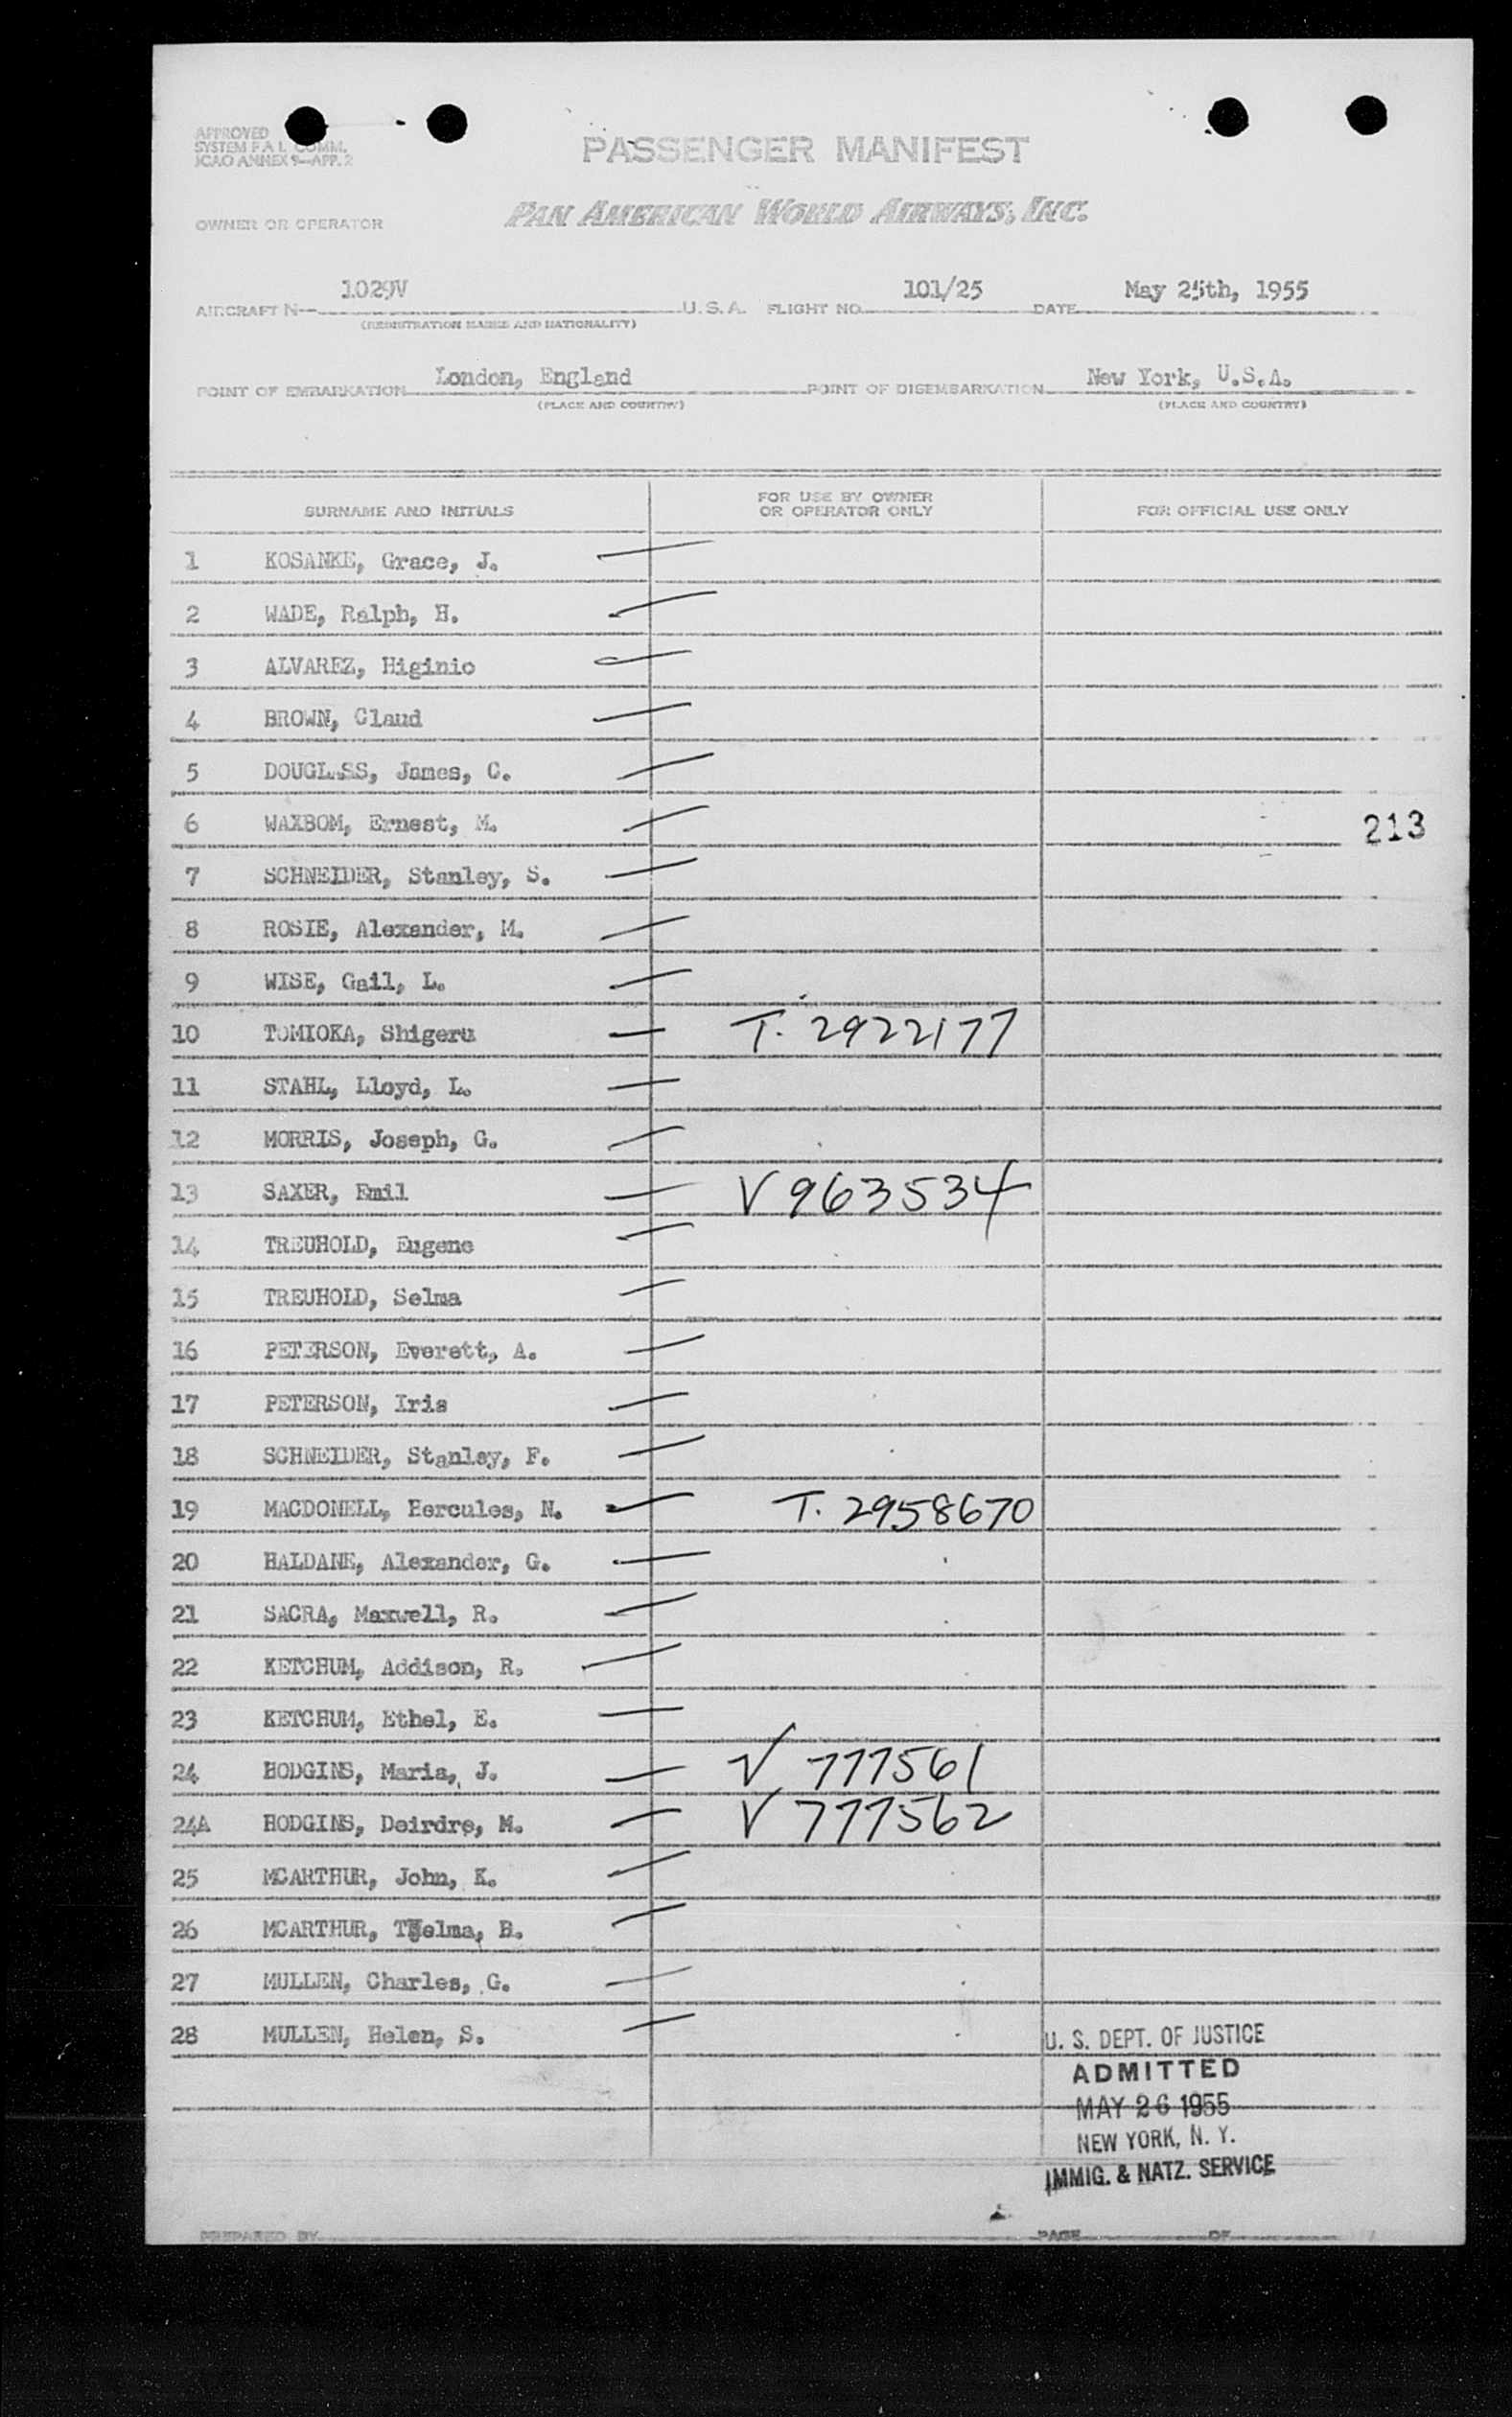 APPROVED
SYSTEM F.A.L. COMM.
ICAO ANNEX 9—APP. 2
PASSENGER MANIFEST
OWNER OR OPERATOR PAN AMERICAN WORLD AIRWAYS, INC.
AIRCRAFT N— 1029V U.S.A. FLIGHT NO. 101/25 DATE May 25th, 1955
(REGISTRATION MARKS AND NATIONALITY)
POINT OF EMBARKATION London, England POINT OF DISEMBARKATION New York, U.S.A.
(PLACE AND COUNTRY) (PLACE AND COUNTRY)
SURNAME AND INITIALS FOR USE BY OWNER OR OPERATOR ONLY FOR OFFICIAL USE ONLY
1 KOSANKE, Grace, J.
2 WADE, Ralph, H.
3 ALVAREZ, Higinio
4 BROWN, Claud
5 DOUGLASS, James, C.
6 WAXBOM, Ernest, M. 213
7 SCHNEIDER, Stanley, S.
8 ROSIE, Alexander, M.
9 WISE, Gail, L.
10 TOMIOKA, Shigeru T. 2922177
11 STAHL, Lloyd, L.
12 MORRIS, Joseph, G.
13 SAXER, Emil V 963534
14 TREUHOLD, Eugene
15 TREUHOLD, Selma
16 PETERSON, Everett, A.
17 PETERSON, Iris
18 SCHNEIDER, Stanley, F.
19 MACDONELL, Hercules, N. T. 2958670
20 HALDANE, Alexander, G.
21 SACRA, Maxwell, R.
22 KETCHUM, Addison, R.
23 KETCHUM, Ethel, E.
24 HODGINS, Maria, J. V 777561
24A HODGINS, Deirdre, M. V 777562
25 MCARTHUR, John, K.
26 MCARTHUR, Thelma, B.
27 MULLEN, Charles, G.
28 MULLEN, Helen, S.
U. S. DEPT. OF JUSTICE
ADMITTED
MAY 26 1955
NEW YORK, N. Y.
IMMIG. & NATZ. SERVICE
PREPARED BY PAGE OF